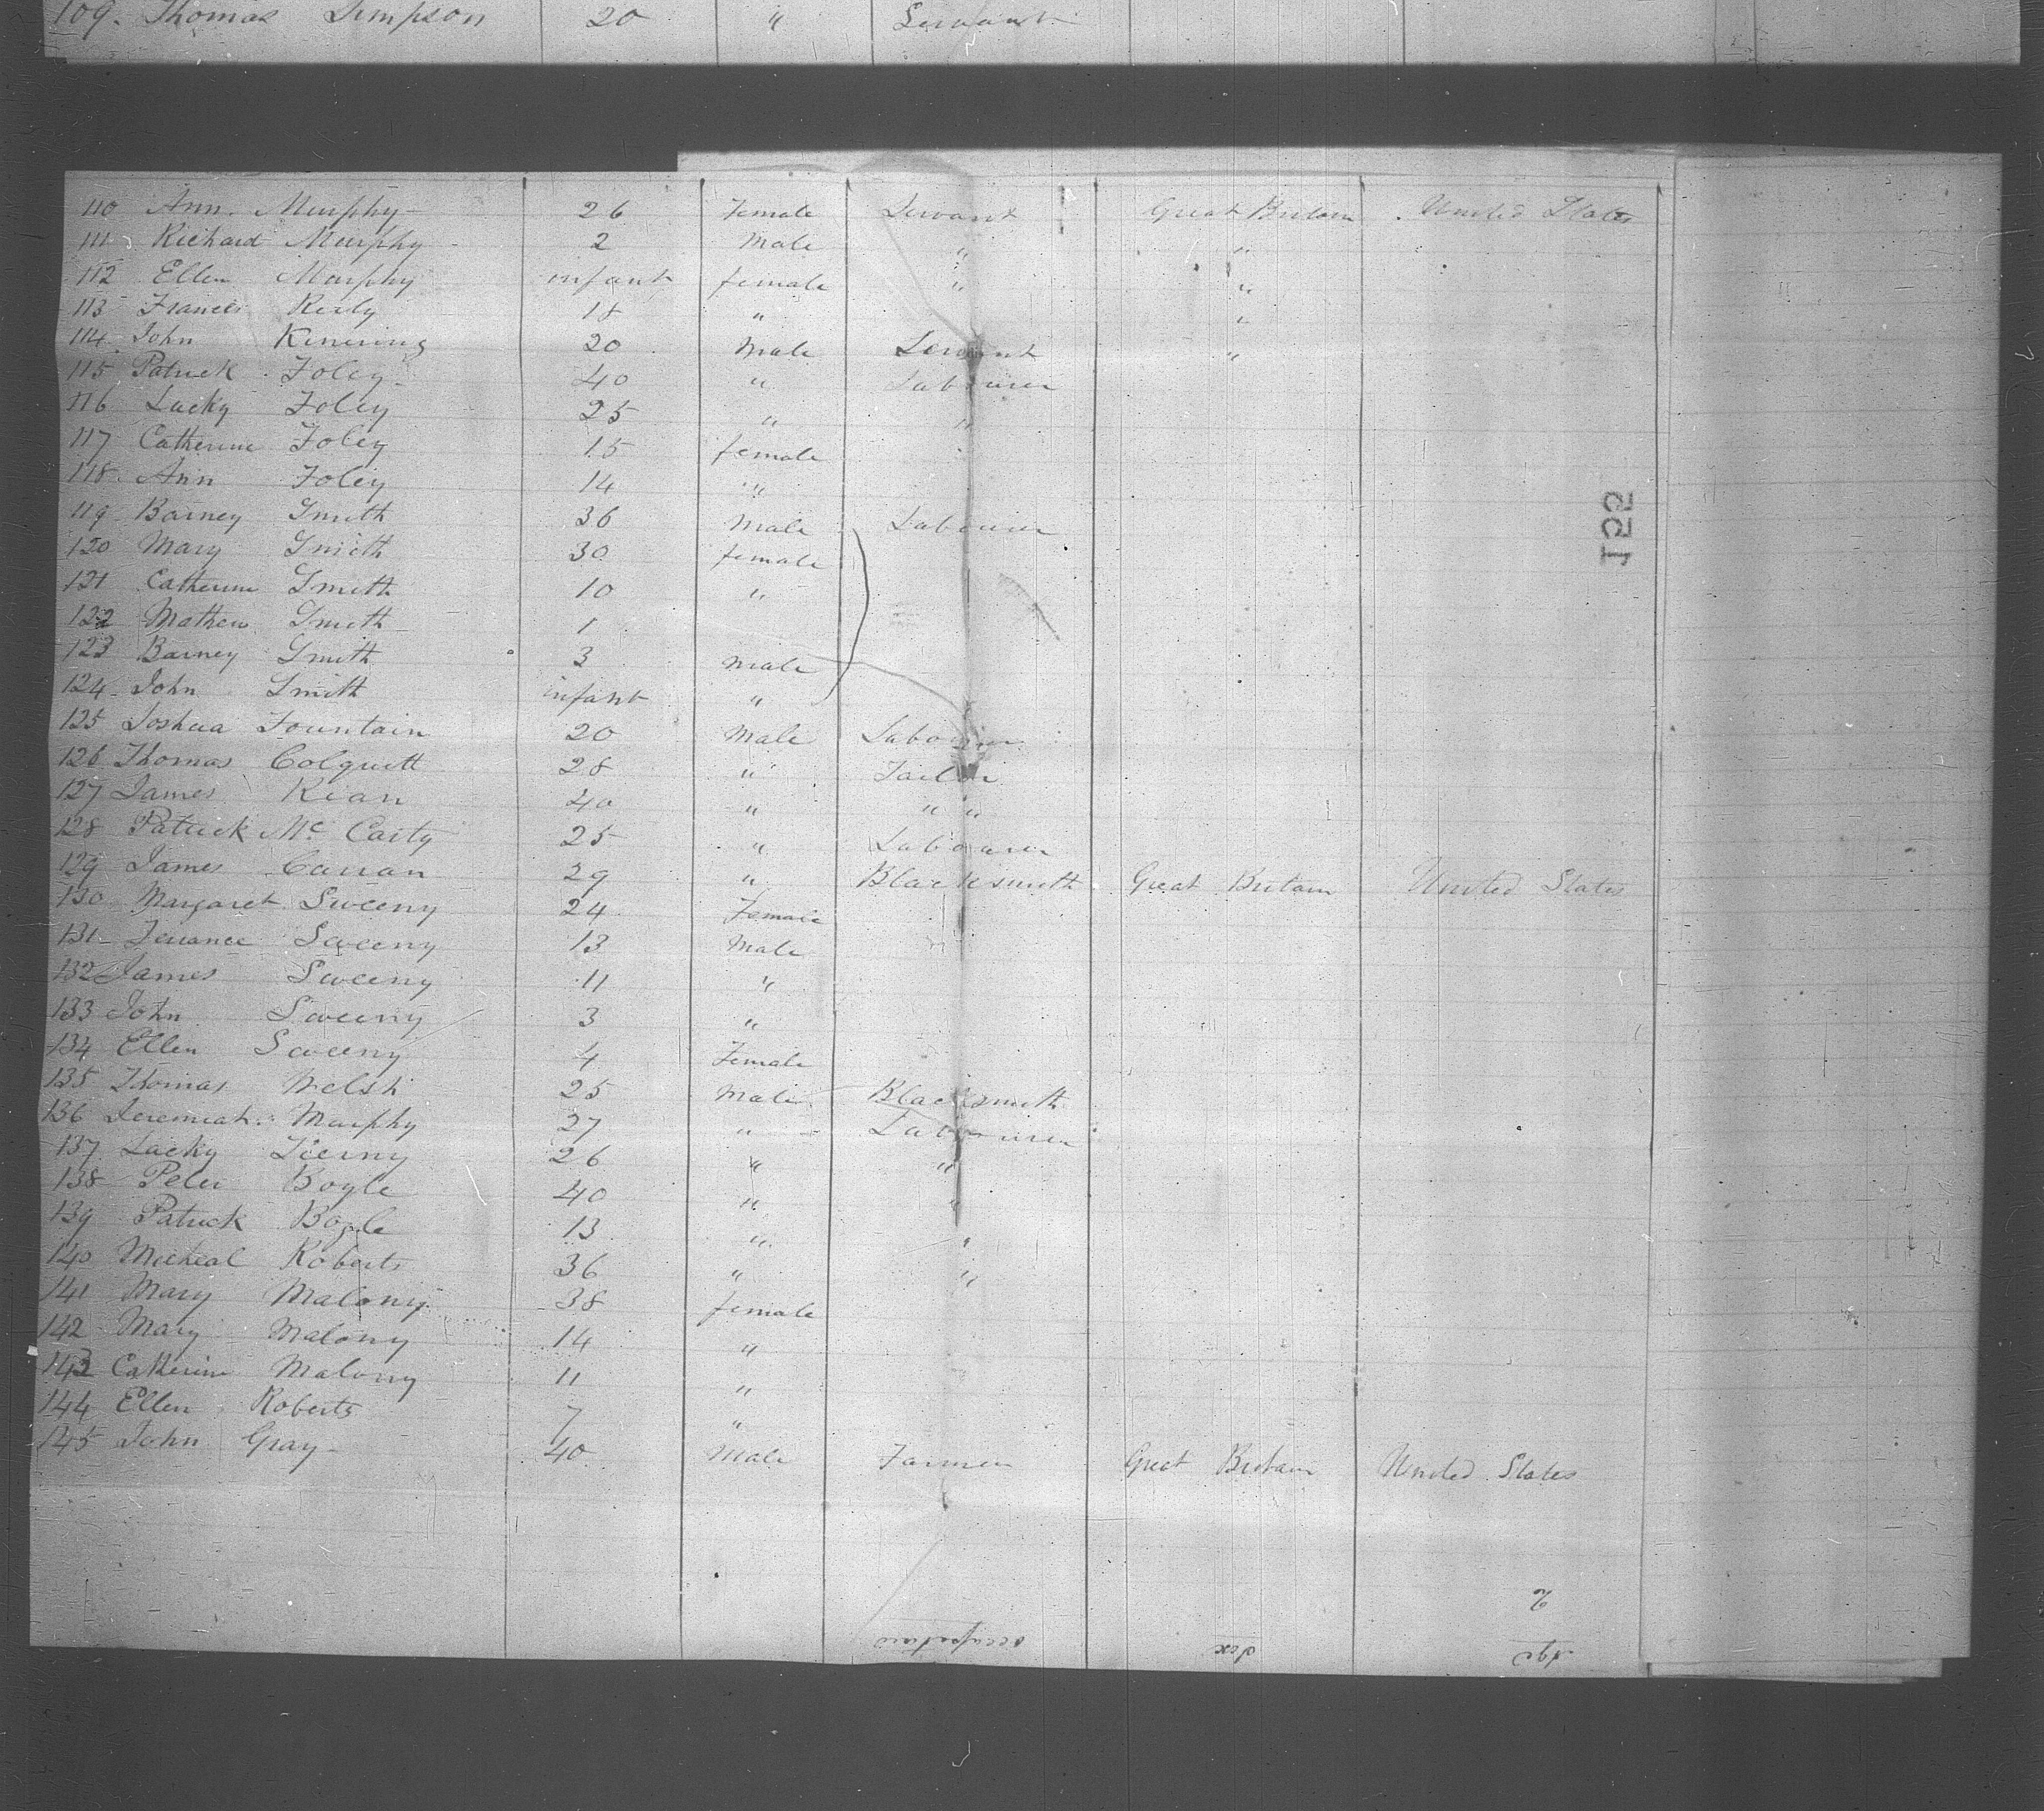 109. Thomas Simpson 20 " Servant
110 Ann. Murphy 26 Female Servant Great Britain United States
111 Richard Murphy 2 Male " "
112 Ellen Murphy infant female " "
113 Frances Reily 18 " "
114 John Kinering 20 Male Servant "
115 Patrick Foley 40 " Labourer
116 Lacky Foley 25 " "
117 Catherine Foley 15 female
118 Ann Foley 14 "
119 Barney Smith 36 Male Labourer
120 Mary Smith 30 female
121 Catherine Smith 10 "
122 Mathew Smith 1
123 Barney Smith 3 Male
124 John Smith infant "
125 Joshua Fountain 20 Male Labourer
126 Thomas Colquitt 28 " Tailor
127 James Kean 40 " " "
128 Patrick Mc Carty 25 " Labourer
129 James Curran 29 " Blacksmith Great Britain United States
130 Margaret Sweeny 24 Female
131 Terrance Sweeny 13 Male
132 James Sweeny 11 "
133 John Sweeny 3 "
134 Ellen Sweeny 4 Female
135 Thomas Welsh 25 Male Blacksmith
136 Jeremiah Murphy 27 " Labourer
137 Lacky Tierny 26 " "
138 Peter Boyle 40 " "
139 Patrick Boyle 13 " "
140 Micheal Roberts 36 " "
141 Mary Malony 38 female
142 Mary Malony 14 "
143 Catherine Malony 11 "
144 Ellen Roberts 7 "
145 John Gray 40 Male Farmer Great Britain United States
122
2
occupation Sex Age